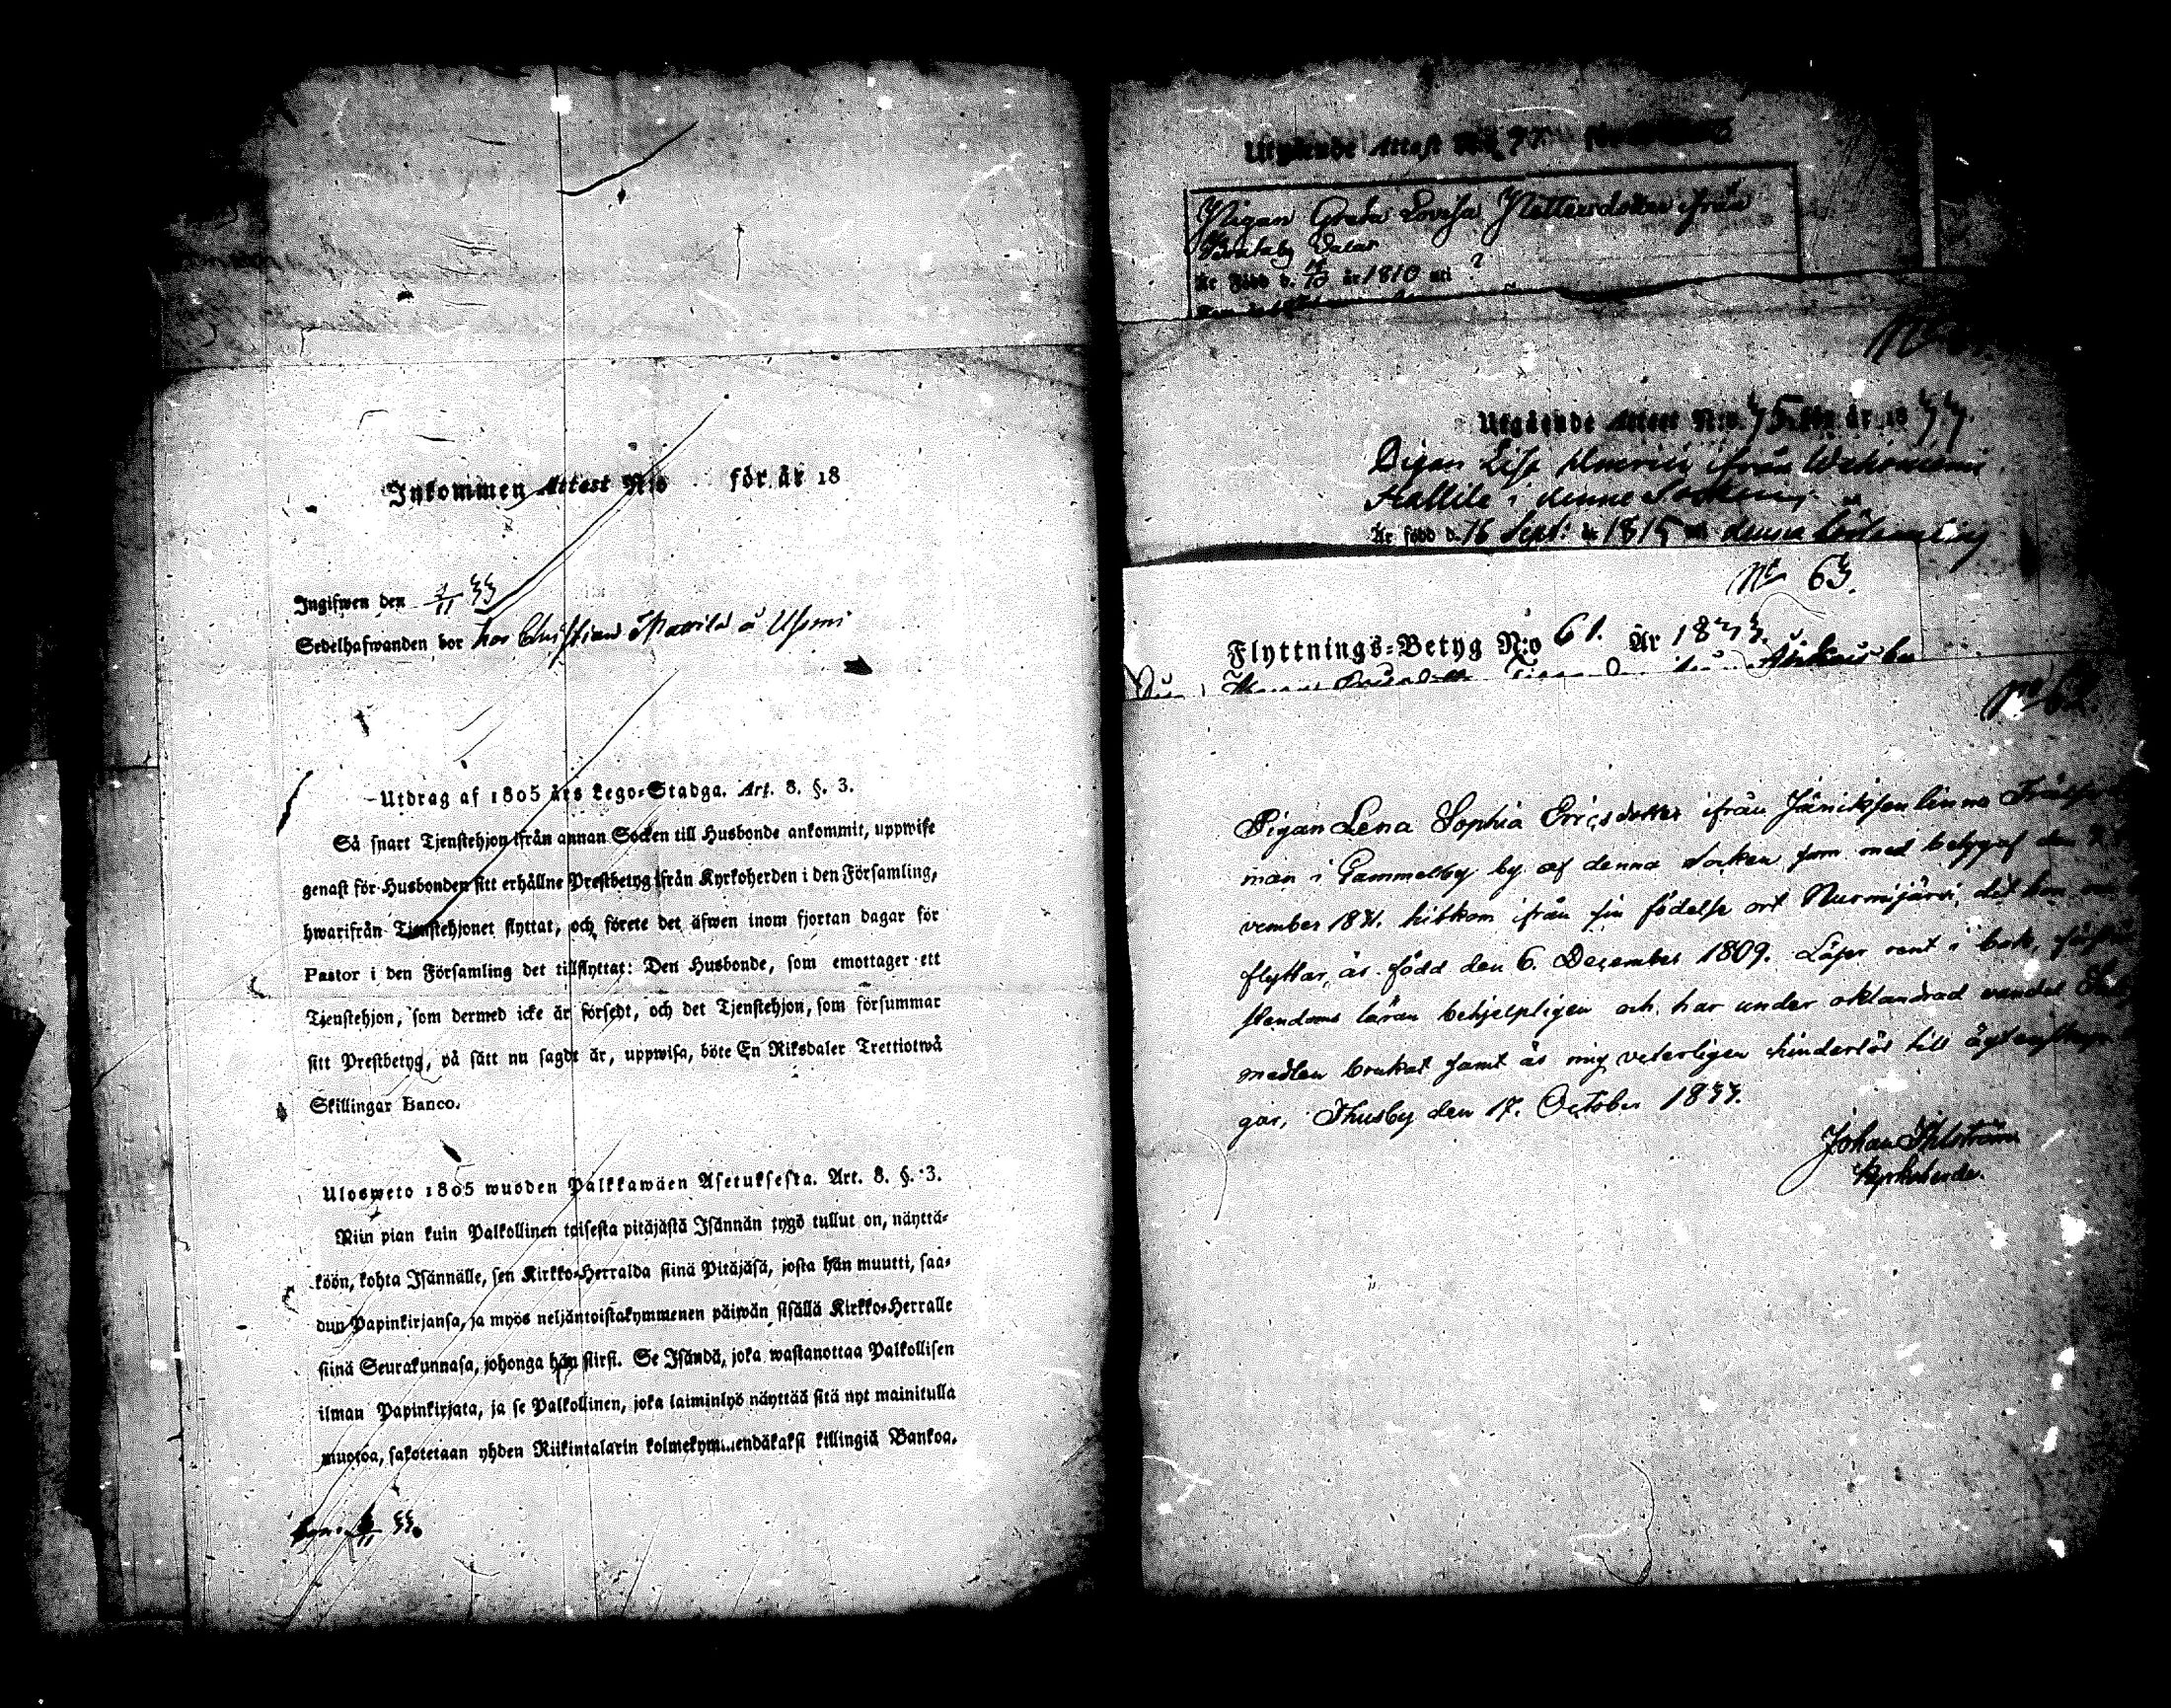 Inkommen Attest N:o för år 18
Ingifwen den 4/11 44
Sedelhafwanden bor hos Christian Mattila å Uhsmi
Utdrag af 1805 års Lego-Stadga. Art. 8. §. 3.
Så snart Tjenstehjon ifrån annan Socken till Husbonde ankommit, uppwise
genast för Husbonden sitt erhållne Prestbetyg ifrån Kyrkoherden i den Församling,
hwarifrån Tjenstehjonet flyttat, och förete det äfwen inom fjortan dagar för
Pastor i den Församling det tillflyttat: Den Husbonde, som emottager ett
Tjenstehjon, som dermed icke är försedt, och det Tjenstehjon, som försummar
sitt Prestbetyg, på sätt nu sagdt är, uppwisa, böte En Riksdaler Trettiotwå
Skillingar Banco.
Ulosweto 1805 wuoden Palkkawäen Asetuksesta. Art. 8. §. 3.
Niin pian kuin Palkollinen toisesta pitäjästä Isännän tygö tullut on, näyttä-
köön, kohta Isännälle, sen Kirkko-Herralda siinä Pitäjäsä, josta hän muutti, saa-
dun Papinkirjansa, ja myös neljäntoistakymmenen päiwän sisällä Kirkko-Herralle
siinä Seurakunnasa, johonga hän siirsi. Se Isändä, joka wastanottaa Palkollisen
ilman Papinkirjata, ja se Palkollinen, joka laiminlyö näyttää sitä nyt mainitulla
muotoa, sakotetaan yhden Riikintalarin kolmekymmendäkaksi killingiä Bankoa.
44.
Utgående Attest N:o
Pigan Greta Lovisa Pettersdotter ifrån
Dalar
Är Född d. år 1810 uti ?
Utgående Attest N:o 45 för år 1844.
Pigan Lisa ifrån
i denne Socken
Är född d. 16 Sept: år 1815 denna
No 63.
Flyttnings-Betyg N:o 61. År 1844.
No 62.
Pigan Lena Sophia Ericsdotter ifrån Jäniksenlinna
man i Gammelby by af denna Socken som med betyg af den
vember 1841. hitkom ifrån sin födelse ort Nurmijärvi, dit hon nu
flyttar, är född den 6. December 1809. Läser rent i bok,
stendoms läran behjelpligen och har under oklandrad vandel
medlen brukat samt är mig veterligen hinderlös till ägtenskaps
går, Thusby den 17. October 1844.
Johan
Kyrkoherde.